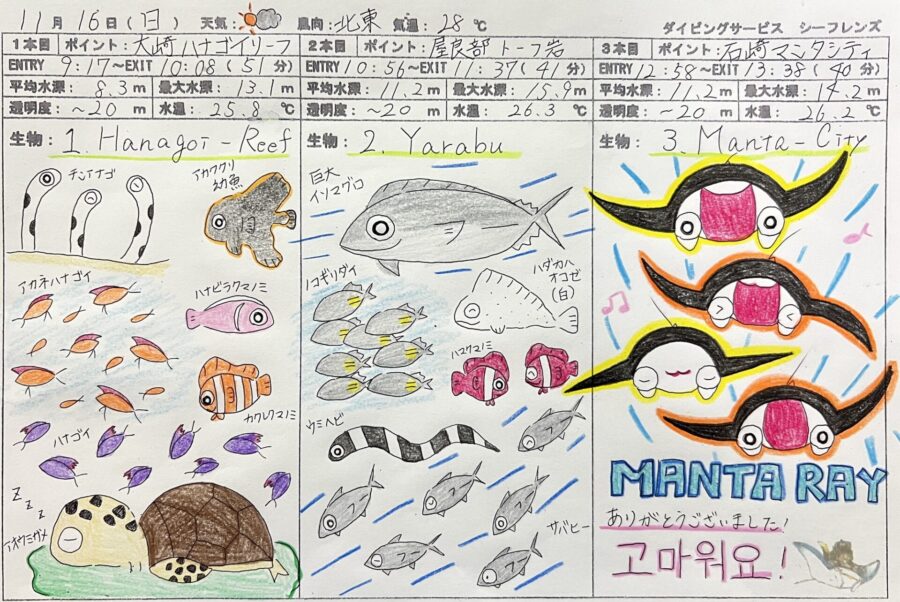 11月16日(日) 天気: 風向:北東 気温:28℃
ダイビングサービス シーフレンズ
1本目 ポイント:大崎ハナゴイリーフ
ENTRY 9:17～EXIT 10:08(51分)
平均水深: 8.3m 最大水深: 13.1m
透明度: ～20m 水温: 25.8℃
生物: 1. Hanagoi-Reef
チンアナゴ
アカククリ
幼魚
アカネハナゴイ
ハナビラクマノミ
カクレクマノミ
ハナゴイ
Z
z
z
アオウミガメ
2本目 ポイント:屋良部トーフ岩
ENTRY 10:56～EXIT 11:37(41分)
平均水深: 11.2m 最大水深: 15.9m
透明度: ～20m 水温: 26.3℃
生物: 2. Yarabu
巨大
イソマグロ
ノコギリダイ
ハダカハ
オコゼ
(白)
ハマクマノミ
ウミヘビ
サバヒー
3本目 ポイント:石崎マンタシティ
ENTRY 12:58～EXIT 13:38(40分)
平均水深: 11.2m 最大水深: 14.2m
透明度: ～20m 水温: 26.2℃
生物: 3. Manta-City
MANTA RAY
ありがとうございました!
고마워요!